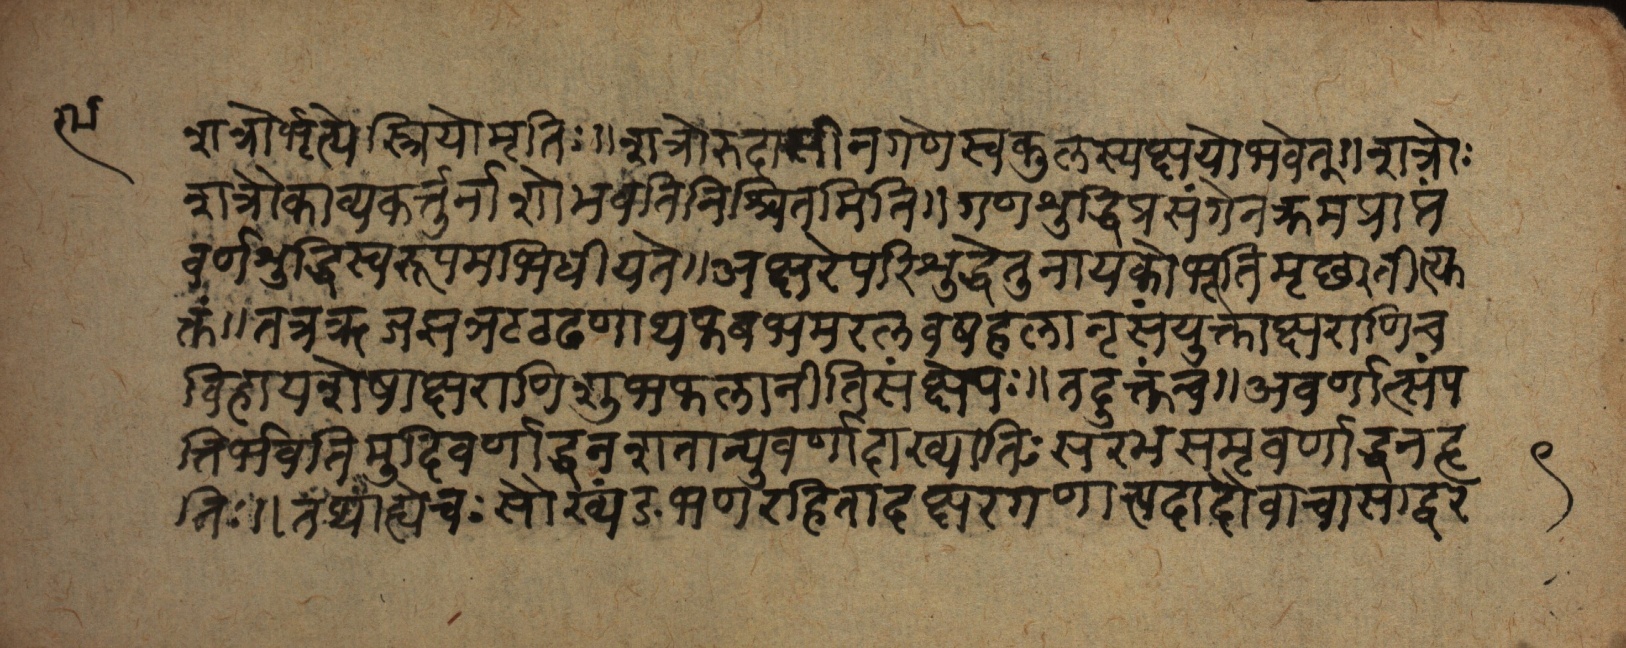 शत्रोर्भृत्ये स्त्रियो मृतिः ॥ शत्रोरुदासीनगणे स्वकुलस्य क्षयो भवेत् ॥ शत्रोः
शत्रौ काव्यकर्त्तुर्नाशो भवति निश्चितमिति ॥ गणशुद्धिप्रसंगेन क्रमप्राप्तं
वर्णशुद्धिस्वरूपमभिधीयते ॥ अक्षरे परिशुद्धे तु नायको भूतिमृच्छतीत्यु
क्तं ॥ तत्र ङजझञटठढणथफबभमरलवषहलानृसंयुक्ताक्षराणि च
विहाय शेषाक्षराणि शुभफलानीति संक्षेपः ॥ तदुक्तं च ॥ अवर्णात्संप
त्तिर्भवति मुदिवर्णाद्धनशतान्युवर्णादाख्यातिः सरभसमृवर्णाद्धनहृ
तिः ॥ तथा ह्येचः सौख्यं ङञणरहितादक्षरगणात्पदादौ वा